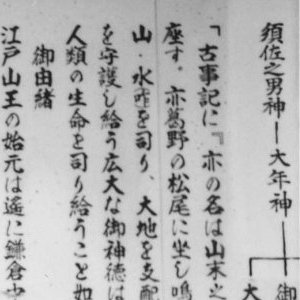 須佐之男神―大年神―
御
大
「古事記に『亦の名は山末之
座す。亦葛野の松尾に坐し鳴
山・水を司り、大地を支配
を守護し給う広大な御神徳は
人類の生命を司り給うこと如
御由緒
江戸山王の始元は遥に鎌倉